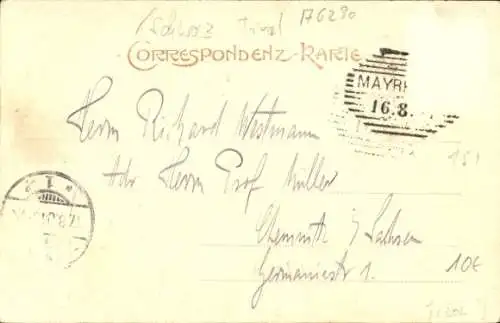 (Schwaz Tirol 176290
CORRESPONDENZ-KARTE
MAYRH
16.8.
Herrn Richard Westmann
Adr Herrn Prof Müller
151
Chemnitz i/ Sachsen
Germaniastr 1.
10€
1